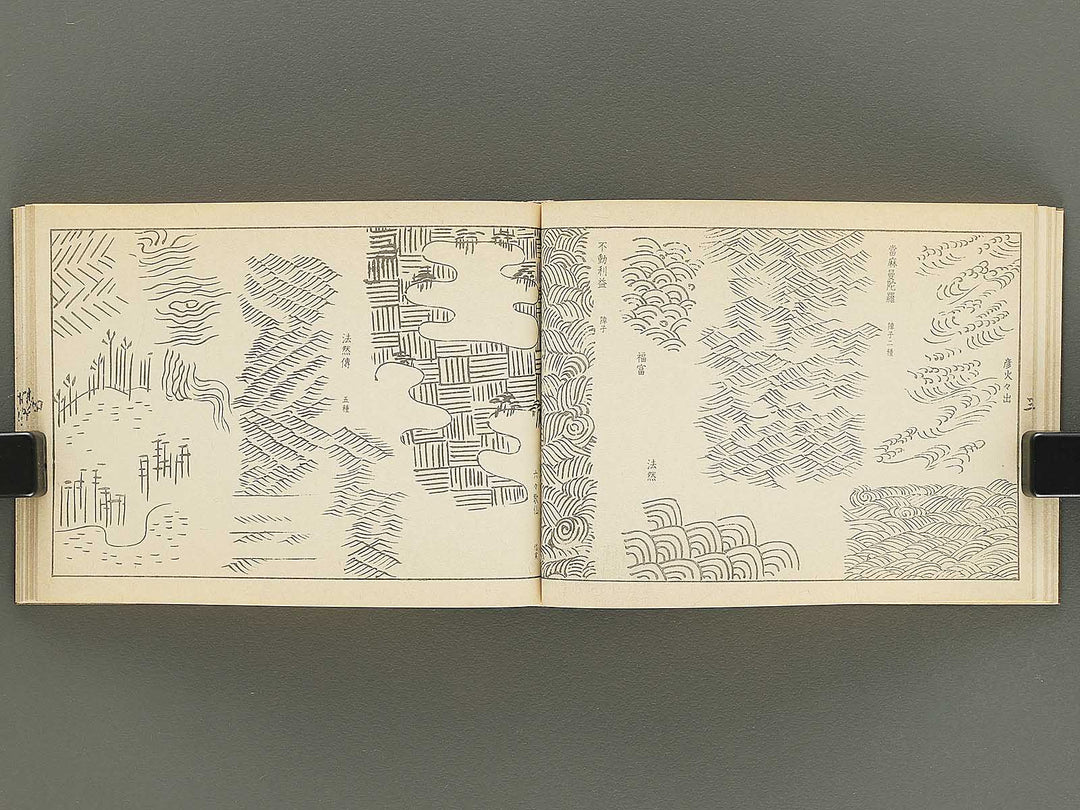 彦火々出
當麻曼陀羅
障子二種
福富
法然
不動利益
障子
法然傳
五種